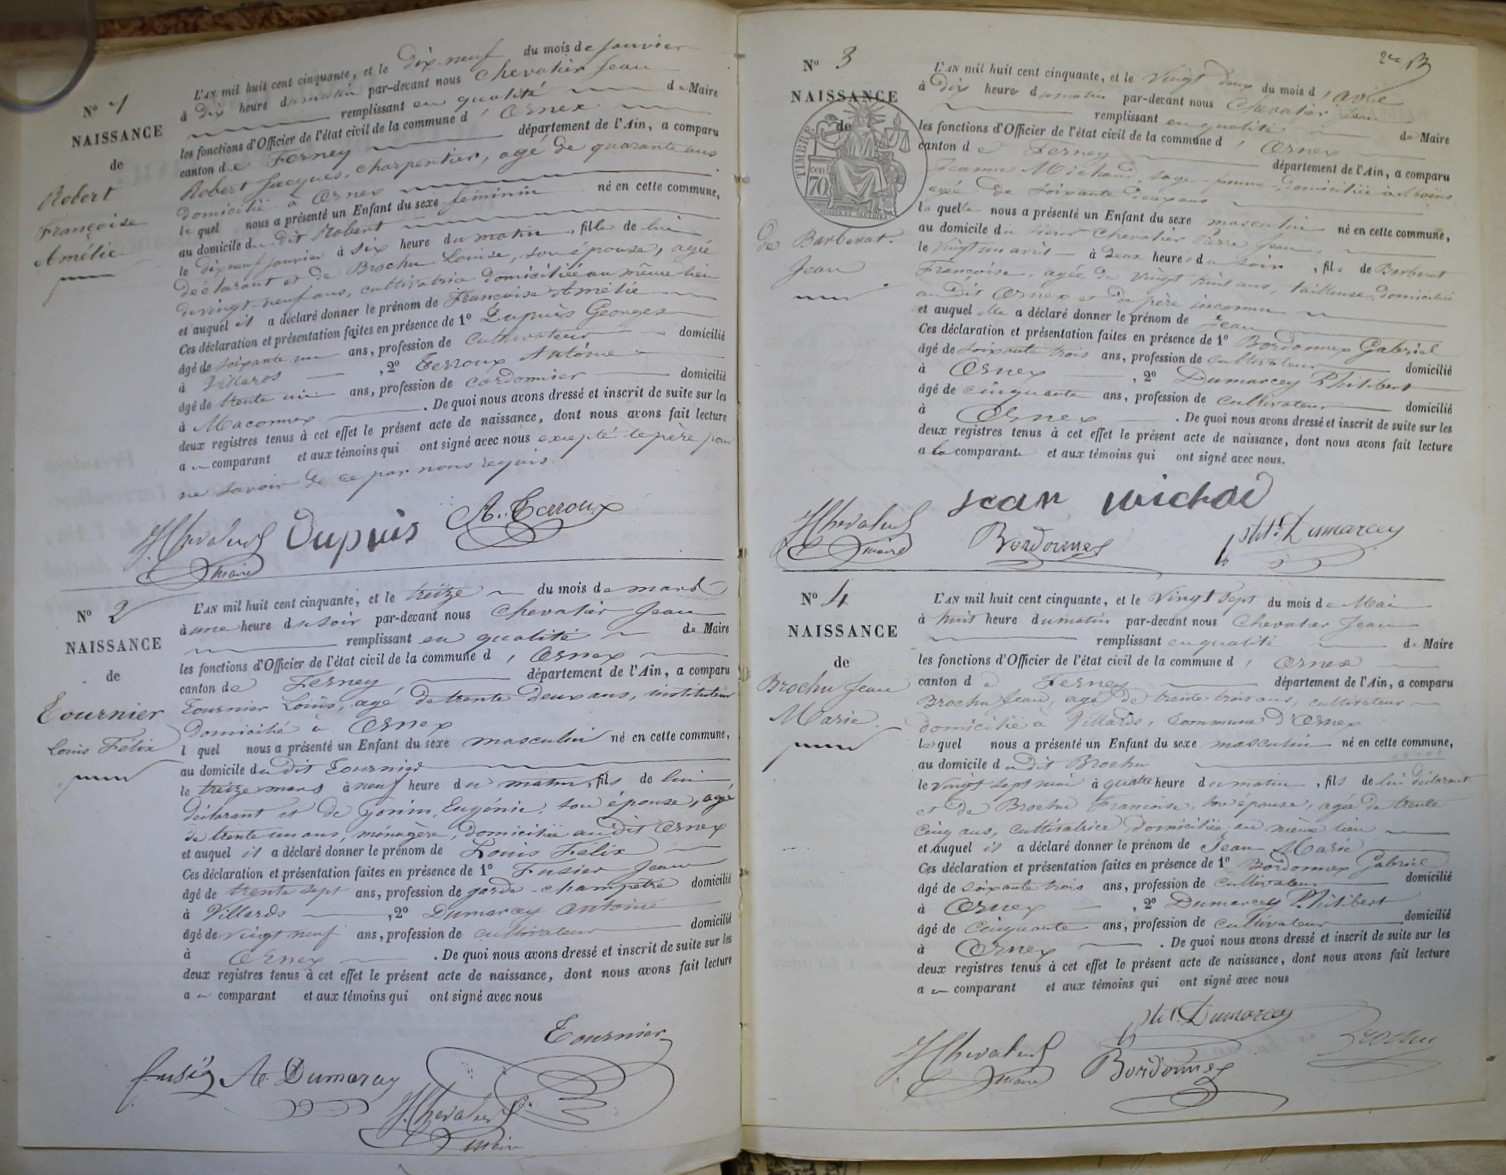 N° 1
NAISSANCE
de
Robert
Françoise
Amélie
L'AN mil huit cent cinquante, et le dix neuf du mois de Janvier
à dix heure du matin par-devant nous Chevalier Jean
remplissant en qualité de Maire
les fonctions d'Officier de l'état civil de la commune d' Ornex
canton de Ferney département de l'Ain, a comparu
Robert Jacques, charpentier, agé de quarante ans
domicilié à Ornex
le quel nous a présenté un Enfant du sexe féminin né en cette commune,
au domicile du dit Robert
le dix neuf Janvier à six heure du matin, fille de lui
déclarant et de Brochu Louise, son épouse, agée
de vingt neuf ans, cultivatrice domiciliée au même lieu
et auquel il a déclaré donner le prénom de Françoise Amélie
Ces déclaration et présentation faites en présence de 1° Dupuis Georges
âgé de soixante un ans, profession de cultivateur domicilié
à Villards, 2° Terroux Antoine
âgé de trente un ans, profession de cordonnier domicilié
à Maconnex. De quoi nous avons dressé et inscrit de suite sur les
deux registres tenus à cet effet le présent acte de naissance, dont nous avons fait lecture
au comparant et aux témoins qui ont signé avec nous excepté le père pour
ne savoir de ce par nous requis.
J. Chevalier Dupuis A. Terroux
maire
N° 2
NAISSANCE
de
Tournier
Louis Félix
L'AN mil huit cent cinquante, et le treize du mois de mars
à une heure du soir par-devant nous Chevalier Jean
remplissant en qualité de Maire
les fonctions d'Officier de l'état civil de la commune d' Ornex
canton de Ferney département de l'Ain, a comparu
Tournier Louis, agé de trente deux ans, instituteur
domicilié à Ornex
l quel nous a présenté un Enfant du sexe masculin né en cette commune,
au domicile du dit Tournier
le treize mars à neuf heure du matin, fils de lui
déclarant et de Eugénie, son épouse, agée
de trente un ans, ménagère, domiciliée au dit Ornex
et auquel il a déclaré donner le prénom de Louis Félix
Ces déclaration et présentation faites en présence de 1° Fusier Jean
âgé de trente sept ans, profession de garde-champêtre domicilié
à Villards, 2° Dumarcey Antoine
âgé de vingt neuf ans, profession de cultivateur domicilié
à Ornex. De quoi nous avons dressé et inscrit de suite sur les
deux registres tenus à cet effet le présent acte de naissance, dont nous avons fait lecture
au comparant et aux témoins qui ont signé avec nous
Tournier
fusier A. Dumarcey
J. Chevalier
maire
N° 3
NAISSANCE
de
TIMBRE
70
de Barberat
Jean
L'AN mil huit cent cinquante, et le vingt deux du mois d'avril
à dix heure du matin par-devant nous Chevalier Jean
remplissant en qualité de Maire
les fonctions d'Officier de l'état civil de la commune d' Ornex
canton de Ferney département de l'Ain, a comparu
Jeanne Michaud, sage-femme domiciliée à
agée de soixante deux ans
laquelle nous a présenté un Enfant du sexe masculin né en cette commune,
au domicile du sieur Chevalier Jean
le vingt un avril à deux heures du soir, fils de Barberat
Françoise, agée de vingt huit ans, tailleuse, domiciliée
au dit Ornex et de père inconnu
et auquel elle a déclaré donner le prénom de Jean
Ces déclaration et présentation faites en présence de 1° Bordonnex Gabriel
âgé de soixante trois ans, profession de cultivateur domicilié
à Ornex, 2° Dumarcey Philibert
âgé de cinquante ans, profession de cultivateur domicilié
à Ornex. De quoi nous avons dressé et inscrit de suite sur les
deux registres tenus à cet effet le présent acte de naissance, dont nous avons fait lecture
a la comparante et aux témoins qui ont signé avec nous.
jean michod
J. Chevalier Bordonnex phit. Dumarcey
maire
N° 4
NAISSANCE
de
Brochu Jean
Marie
L'AN mil huit cent cinquante, et le vingt sept du mois de Mai
à huit heure du matin par-devant nous Chevalier Jean
remplissant en qualité de Maire
les fonctions d'Officier de l'état civil de la commune d' Ornex
canton de Ferney département de l'Ain, a comparu
Brochu Jean, agé de trente trois ans, cultivateur
domicilié à Villards, Commune d'Ornex
lequel nous a présenté un Enfant du sexe masculin né en cette commune,
au domicile du dit Brochu
le vingt sept mai à quatre heure du matin, fils de lui déclarant
et de Brochu Françoise, son épouse, agée de trente
cinq ans, cultivatrice domiciliée au même lieu
et auquel il a déclaré donner le prénom de Jean Marie
Ces déclaration et présentation faites en présence de 1° Bordonnex Gabriel
âgé de soixante trois ans, profession de cultivateur domicilié
à Ornex, 2° Dumarcey Philibert
âgé de cinquante ans, profession de cultivateur domicilié
à Ornex. De quoi nous avons dressé et inscrit de suite sur les
deux registres tenus à cet effet le présent acte de naissance, dont nous avons fait lecture
au comparant et aux témoins qui ont signé avec nous
phit. Dumarcey
J. Chevalier Bordonnex Brochu
maire